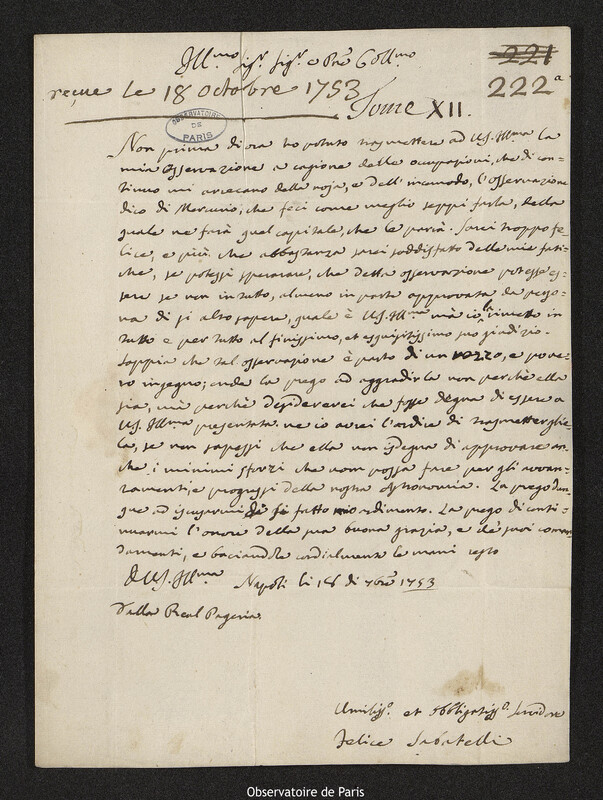 Ill.mo Sig.r Sig.r e Pron Coll.mo
221
222a
reçue le 18 octobre 1753
Tome XII.
OBSERVATOIRE DE PARIS
Non prima di ora ho potuto trasmettere ad VS. Ill.ma la
mia Osservazione a cagione delle occupazioni, che di con=
tinuo mi arrecano della noja, e dell'incomodo, l'osservazione
dico di Mercurio, che feci come meglio seppi farla, della
quale ne farà quel capitale, che le parrà. Sarei troppo fe=
lice, e più, che abbastanza sarei soddisfatto delle mie fati=
che, se potessi sperarare, che detta osservazione potesse es=
sere se non in tutto, almeno in parte approvata da perso=
na di sì alto sapere, quale è VS. Ill.ma mà io la rimetto in
tutto e per tutto al finissimo, et esquisitissimo suo giudizio.
Sappia che tal osservazione è parto di un rozzo, e pove=
ro ingegno; onde la prego ad aggradirla non perchè ella
sia, mà perchè desidererei che fosse degna di essere a
VS. Ill.ma presentata. ne io avrei l'ardire di trasmetterglie
la, se non sapessi che ella non isdegna di approvare an=
che i minimi sforzi che uom possa fare per gli avvan=
zamenti, e progressi della nostra Astronomia. La prego dun=
que ad iscusarmi di sì fatto mio ardimento. La prego di conti=
nuarmi l'onore della sua buona grazia, e de' suoi coman=
damenti, e baciandole cordialmente le mani resto
Di VS. Ill.ma Napoli li 18 di 7bre 1753
Dalla Real Pageria.
Umiliss.o et Obbligatiss.o Servidore
Felice Sabatelli
Observatoire de Paris